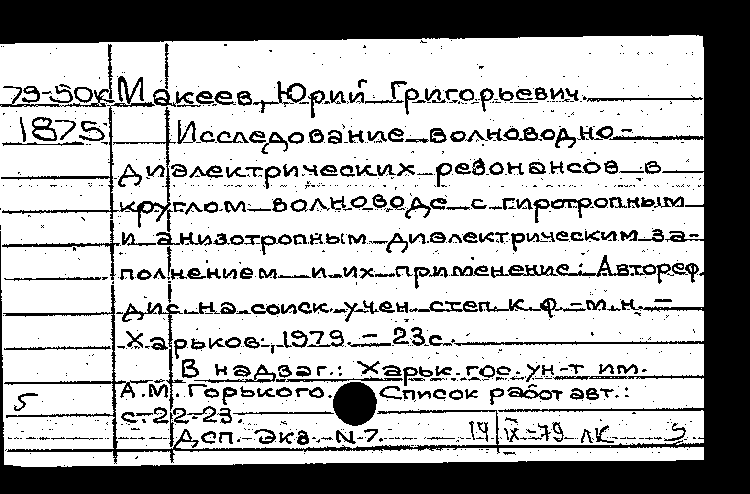 79-50к Макеев, Юрий Григорьевич.
1875 Исследование волноводно-
диэлектрических резонансов в
круглом волноводе с гиротропным
и анизотропным диэлектрическим за-
полнением и их применение: Автореф.
дис. на соиск. учен. степ. к. ф.-м. н. –
Харьков, 1979. – 23 с.
В надзаг.: Харьк. гос. ун-т им.
5 А.М. Горького. Список работ авт.:
с. 22-23.
Дсп. Экз. N 7. 14 IX-79 ЛК 5